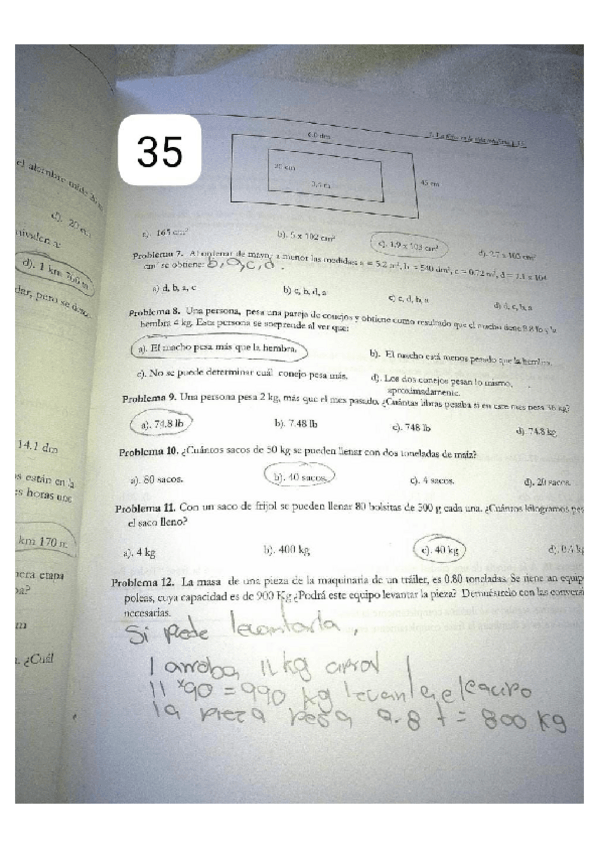 35
6.0 dm
el alambre mide
45 cm
3.5 m
d). 1 km
a). 165 cm²
b). 5 x 102 cm²
c). 1.9 x 103 cm²
d). 2.7 x 103 cm²
Problema 7. Al ordenar de mayor a menor las medidas
cm² se obtiene: b, a, c, d.
a) d, b, a, c
b) c, b, d, a
c) c, d, b, a
Problema 8. Una persona, pesa una pareja de conejos y obtiene como resultado que el macho tiene 8.8 lb y la
hembra 4 kg. Esta persona se sorprende al ver que:
a). El macho pesa más que la hembra.
b). El macho está menos pesado que la hembra.
c). No se puede determinar cuál conejo pesa más.
d). Los dos conejos pesan lo mismo,
aproximadamente.
Problema 9. Una persona pesa 2 kg, más que el mes pasado. ¿Cuántas libras pesaba si en este mes pesa 36 kg?
a). 74.8 lb
b). 7.48 lb
c). 748 lb
d). 74.8 kg
14.1 dm
Problema 10. ¿Cuántos sacos de 50 kg se pueden llenar con dos toneladas de maíz?
a). 80 sacos.
b). 40 sacos.
c). 4 sacos.
d). 20 sacos.
os están en la
s horas una
Problema 11. Con un saco de frijol se pueden llenar 80 bolsitas de 500 g cada una. ¿Cuántos kilogramos
el saco lleno?
km 170 m
a). 4 kg
b). 400 kg
c). 40 kg
Problema 12. La masa de una pieza de la maquinaria de un tráiler, es 0.80 toneladas. Se tiene un equip
poleas, cuya capacidad es de 900 Kg ¿Podrá este equipo levantar la pieza? Demuéstrelo con las conver
necesarias.
. ¿Cuál
Si Pede levantarla,
1 arroba 11 kg
11 x 90 = 990 kg levanta el equipo
la pieza pesa 0.8 t = 800 kg